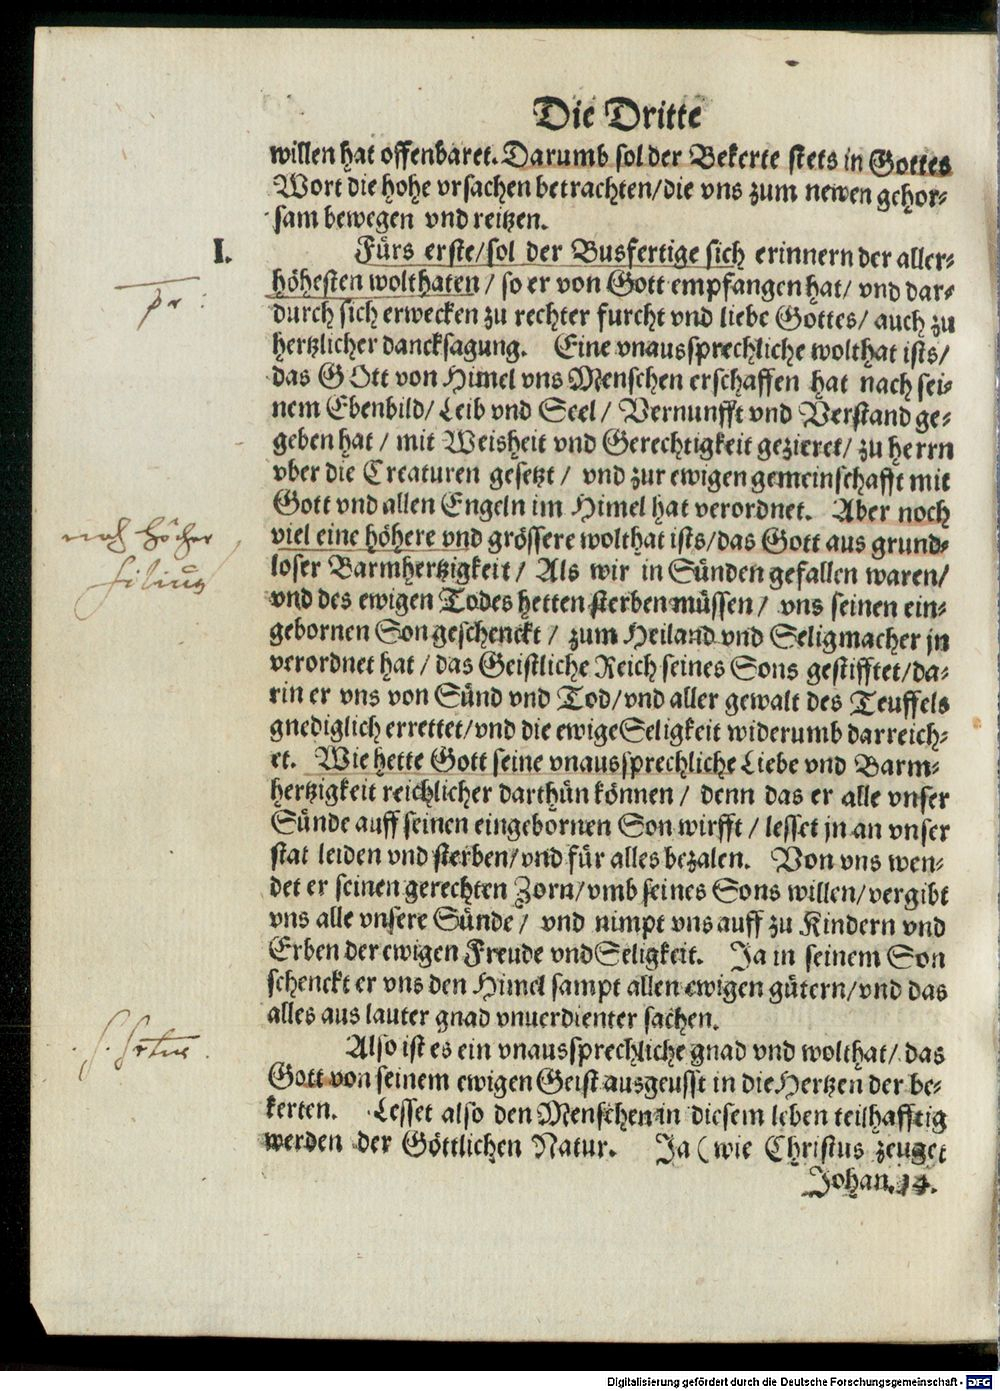 Die Dritte
willen hat offenbaret. Darumb sol der Bekerte stets in Gottes
Wort die hohe vrsachen betrachten/die vns zum newen gehor-
sam bewegen vnd reitzen.
I. Fürs erste/sol der Busfertige sich erinnern der aller-
höhesten wolthaten / so er von Gott empfangen hat/ vnd dar-
durch sich erwecken zu rechter furcht vnd liebe Gottes/ auch zu
hertzlicher dancksagung. Eine vnaussprechliche wolthat ists/
das GOtt von Himel vns Menschen erschaffen hat nach sei-
nem Ebenbild/ Leib vnd Seel / Vernunfft vnd Verstand ge-
geben hat / mit Weisheit vnd Gerechtigkeit gezieret/ zu herrn
vber die Creaturen gesetzt / vnd zur ewigen gemeinschafft mit
Gott vnd allen Engeln im Himel hat verordnet. Aber noch
viel eine höhere vnd grössere wolthat ists/das Gott aus grund-
loser Barmhertzigkeit / Als wir in Sünden gefallen waren/
vnd des ewigen Todes hetten sterben müssen / vns seinen ein-
gebornen Son geschenckt / zum Heiland vnd Seligmacher jn
verordnet hat / das Geistliche Reich seines Sons gestifftet/da-
rin er vns von Sünd vnd Tod/vnd aller gewalt des Teuffels
gnediglich errettet/vnd die ewige Seligkeit widerumb darreich-
et. Wie hette Gott seine vnaussprechliche Liebe vnd Barm-
hertzigkeit reichlicher darthün können / denn das er alle vnser
Sünde auff seinen eingebornen Son wirfft / lesset jn an vnser
stat leiden vnd sterben/vnd für alles bezalen. Von vns wen-
det er seinen gerechten Zorn/vmb seines Sons willen/vergibt
vns alle vnsere Sünde / vnd nimpt vns auff zu Kindern vnd
Erben der ewigen Freude vnd Seligkeit. Ja in seinem Son
schenckt er vns den Himel sampt allen ewigen gütern/vnd das
alles aus lauter gnad vnuerdienter sachen.
Also ist es ein vnaussprechliche gnad vnd wolthat/ das
Gott von seinem ewigen Geist ausgeusst in die Hertzen der be-
kerten. Lesset also den Menschen in diesem leben teilhafftig
werden der Göttlichen Natur. Ja (wie Christus zeuget
Johan. 14.
noch höcher
filius
Digitalisierung gefördert durch die Deutsche Forschungsgemeinschaft - DFG